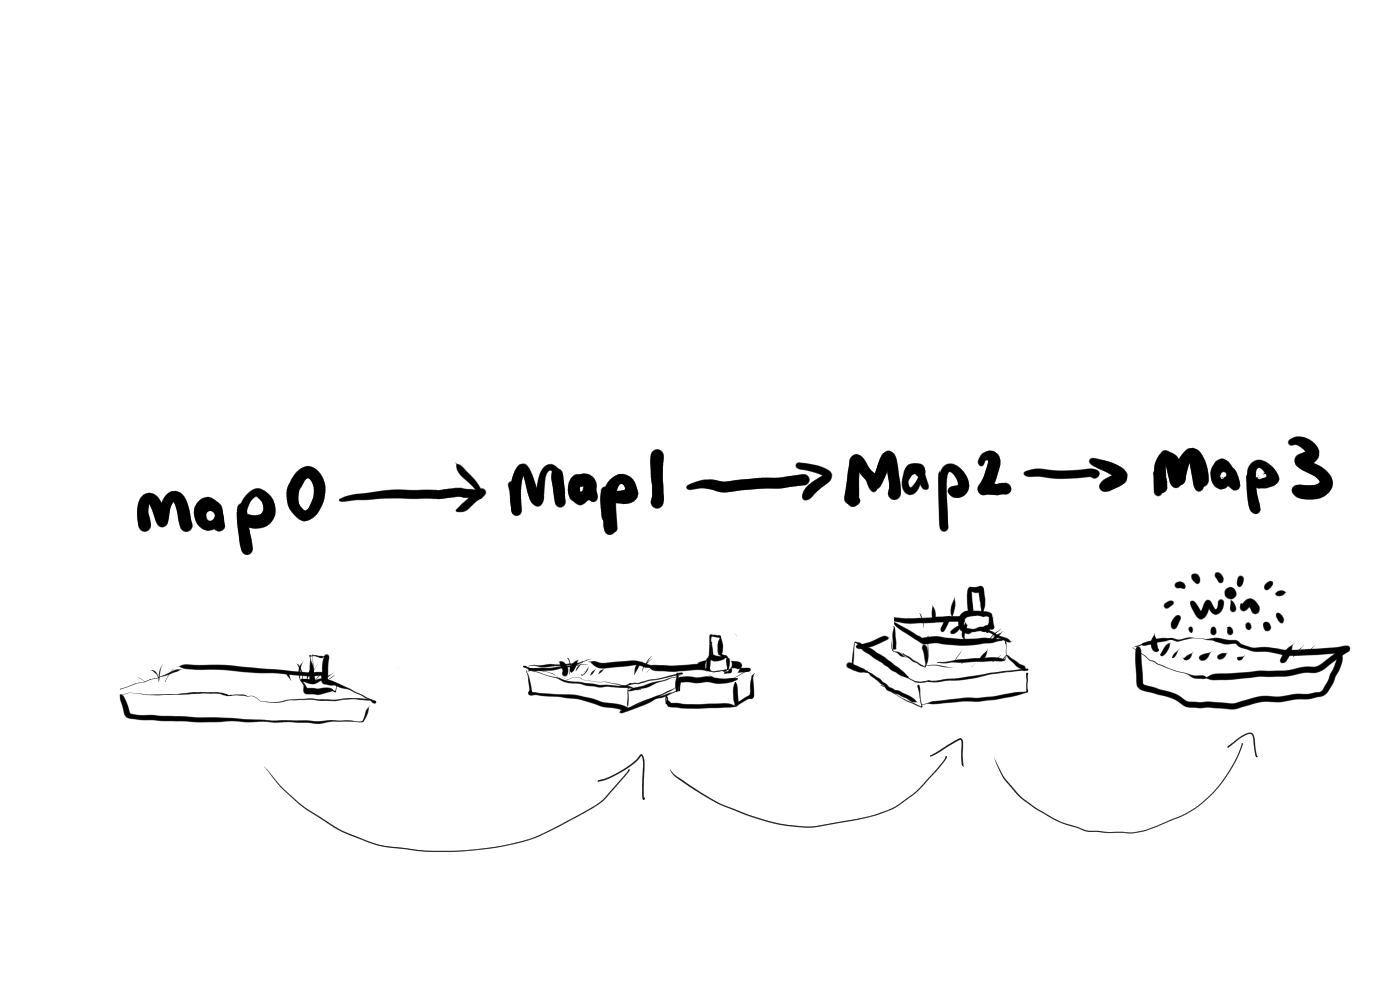 map 0 Map 1 Map 2 Map 3
win